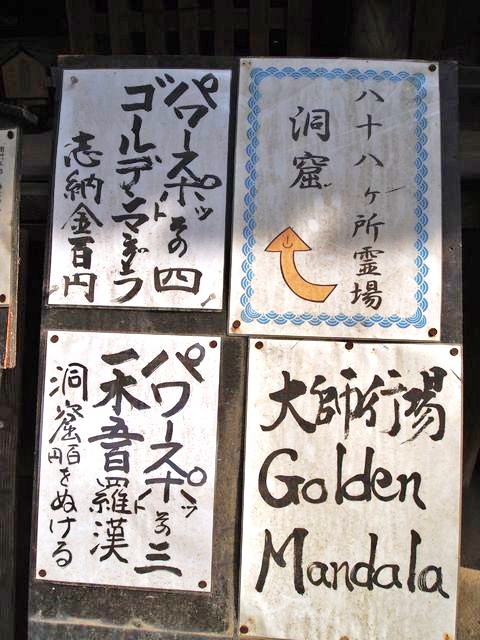 パワースポットその四
ゴールデンマンダラ
志納金百円
八十八ヶ所霊場
洞窟
パワースポットその三
一木五百羅漢
洞窟をぬける
大師行場
Golden
Mandala